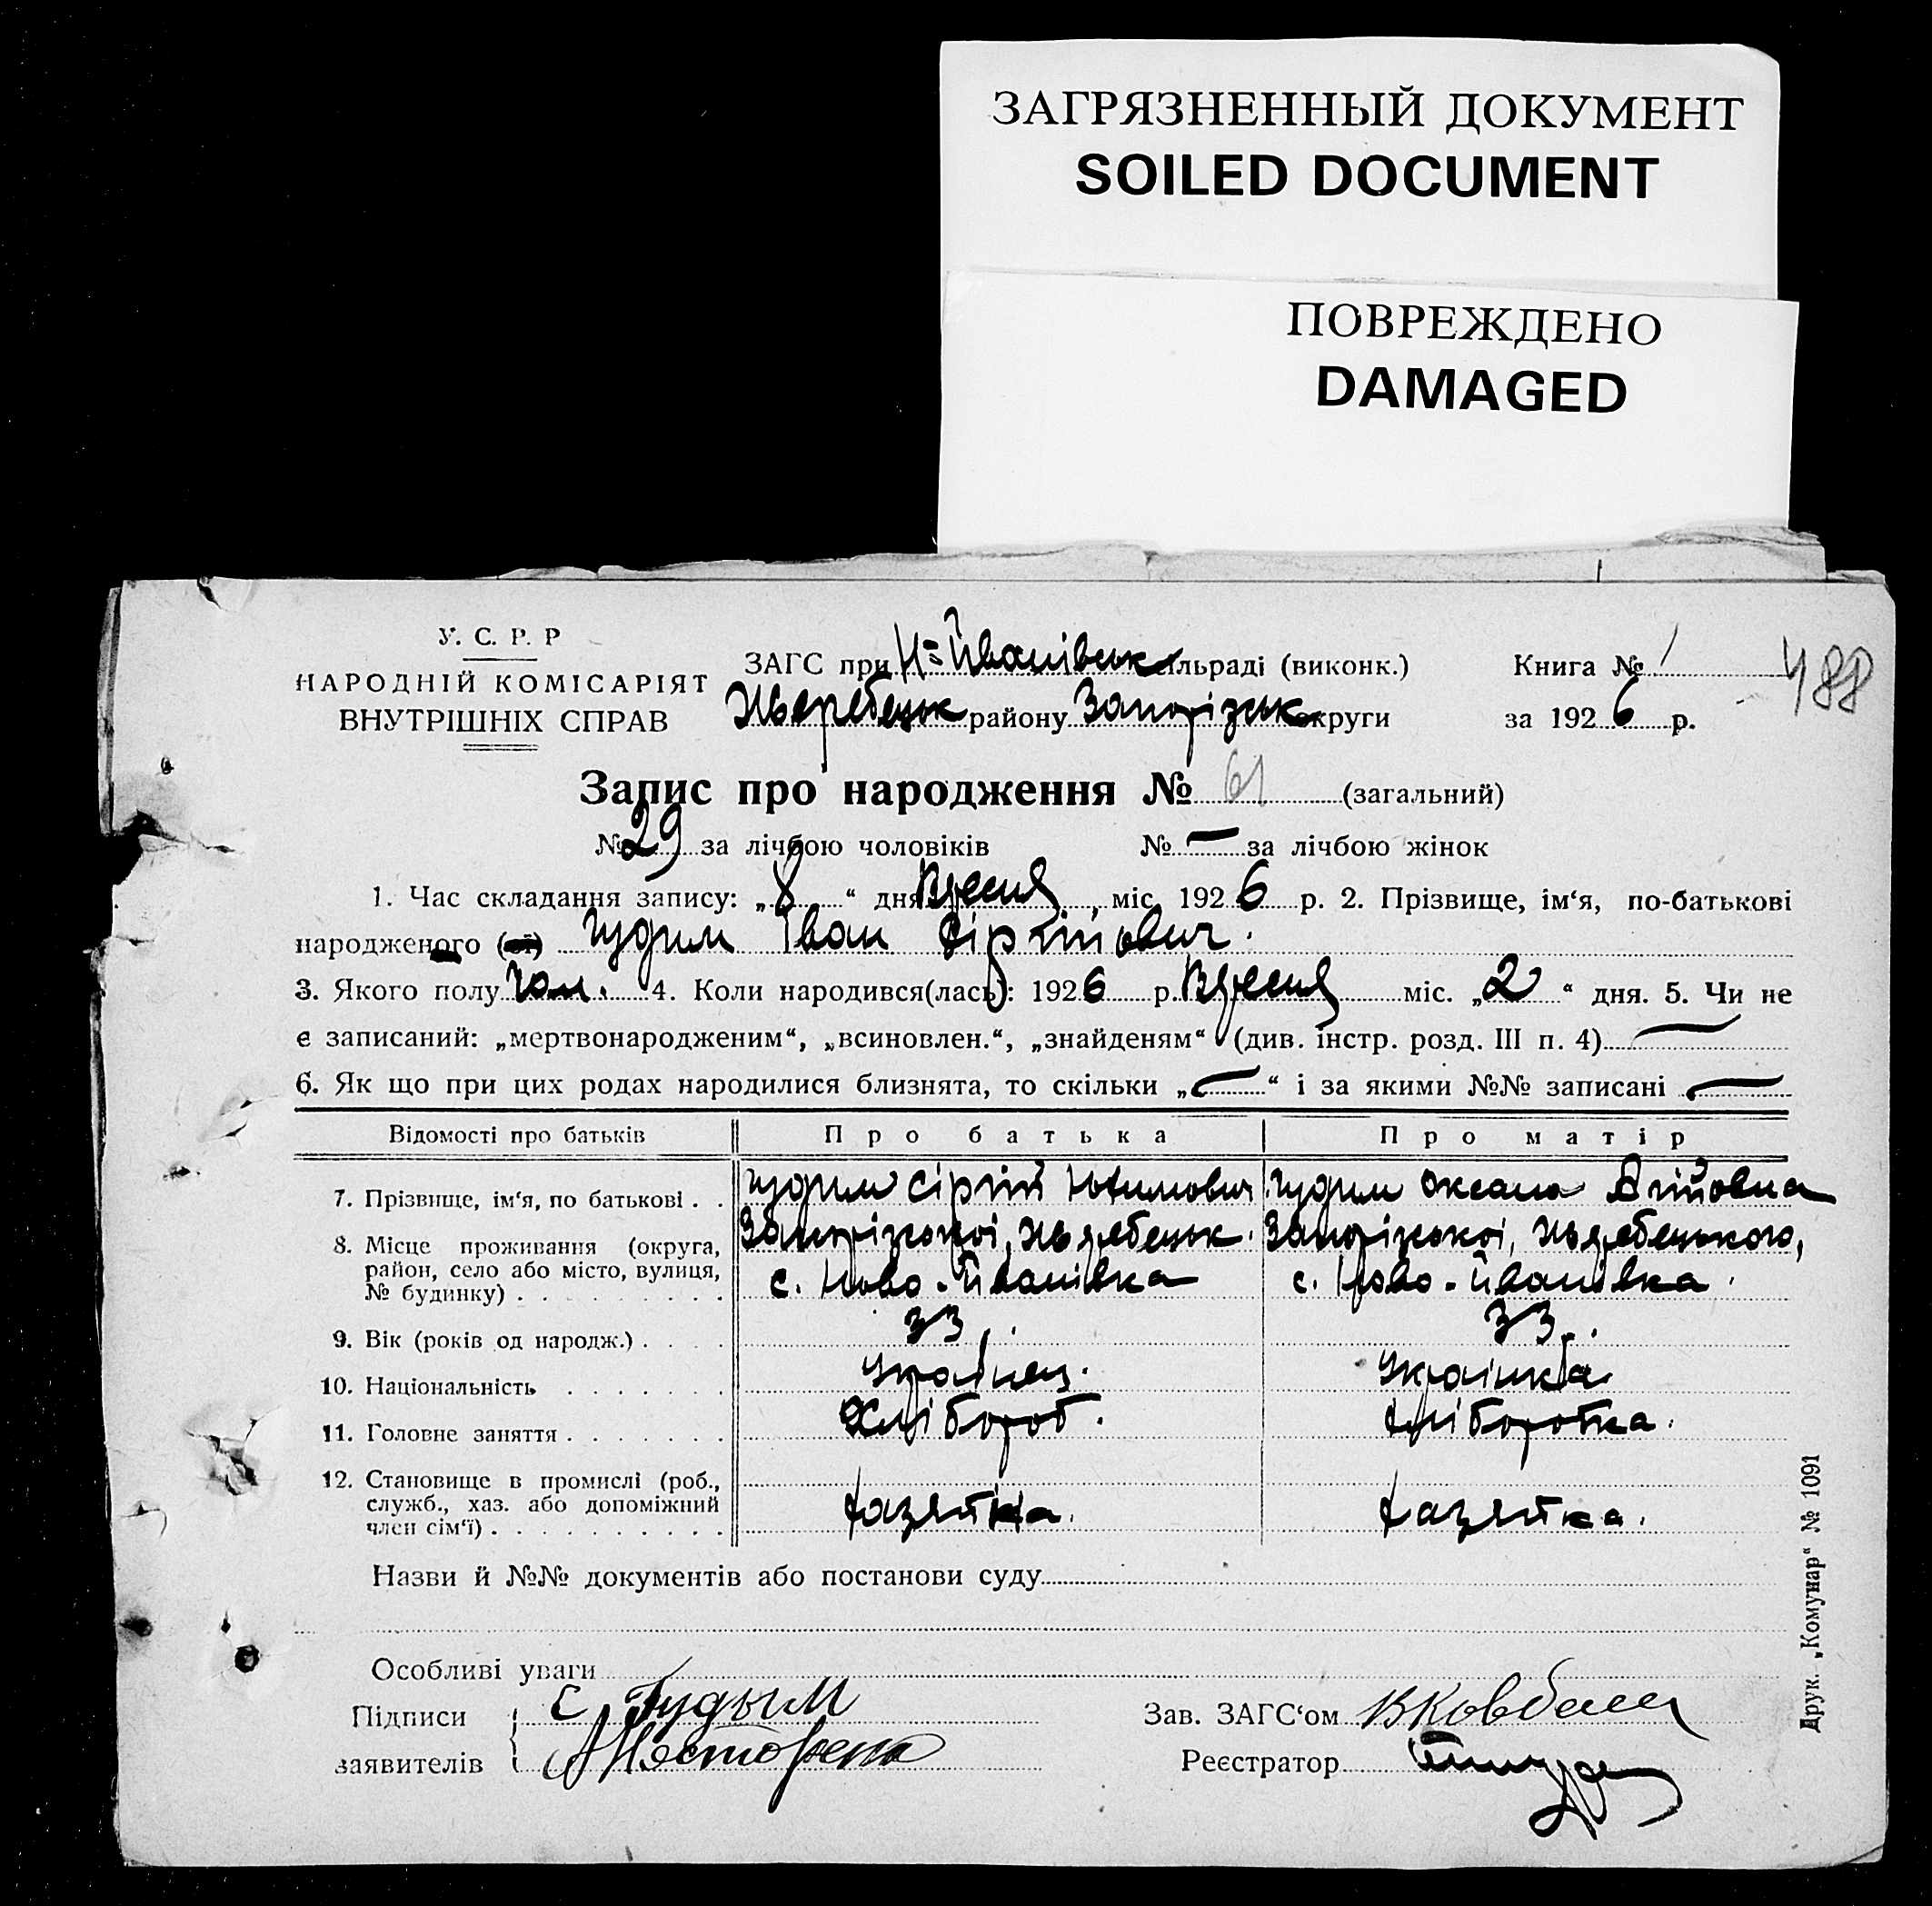 ЗАГРЯЗНЕННЫЙ ДОКУМЕНТ
SOILED DOCUMENT
ПОВРЕЖДЕНО
DAMAGED
У. С. Р. Р
НАРОДНІЙ КОМІСАРІЯТ
ВНУТРІШНІХ СПРАВ
ЗАГС при Н=Йванівськ ільраді (виконк.)
Жеребецьк району Запорізськ округи
Книга № 1
за 1926 р.
488
Запис про народження № 61 (загальний)
№ 29 за лічбою чоловіків № — за лічбою жінок
1. Час складання запису: „8“ дня Вресня, міс. 1926 р. 2. Прізвище, ім‘я, по-батькові
народженого (ої) Гудим Іван Сіргійович.
3. Якого полу Чол. 4. Коли народився(лась): 1926 р. Вресня міс. „2“ дня. 5. Чи не
є записаний: „мертвонародженим“, „всиновлен.“, „знайденям“ (див. інстр. розд. III п. 4) —
6. Як що при цих родах народилися близнята, то скільки „—“ і за якими №№ записані —
Відомості про батьків Про батька Про матір
7. Прізвище, ім‘я, по батькові . . Гудим Сіргій Юхимович Гудим Оксана
8. Місце проживання (округа, Запорізської, Жеребецьк. Запорізської, Жеребецького,
район, село або місто, вулиця, с. Ново-Йванівка с. Ново-Йванівка
№ будинку) . . . . . . . . .
9. Вік (років од народж.) . . . . 33. 33.
10. Національність . . . . . . . Українец. Українка
11. Головне заняття . . . . . . . Хлібороб. Хліборобка.
12. Становище в промислі (роб.,
служб., хаз. або допоміжний Хазяйка. Хазяйка.
член сім‘ї) . . . . . . . . . .
Назви й №№ документів або постанови суду
Особливі уваги
Підписи С Гудым Зав. ЗАГС‘ом ВКовбаса
заявителів Реєстратор
Друк. „Комунар“ № 1091